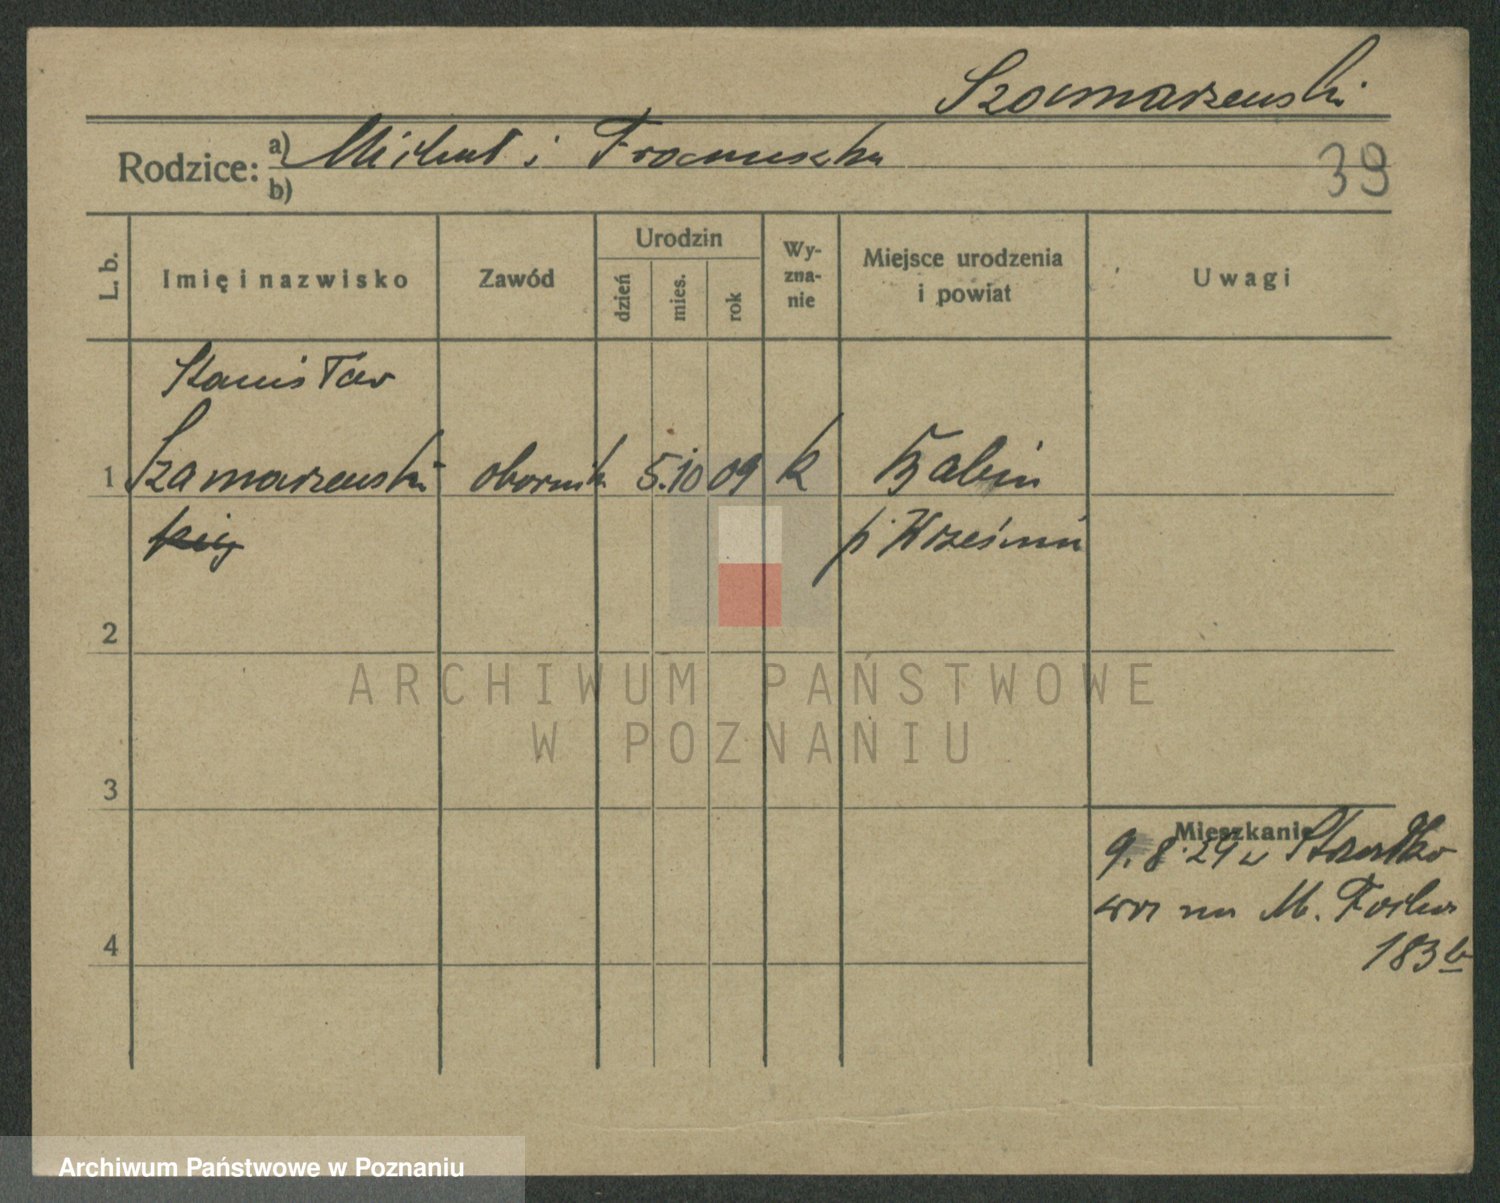 Szamarzewski
Rodzice: a) Michał i Franciszka
b)
39
L. b. Imię i nazwisko Zawód Urodzin dzień mies. rok Wy-zna-nie Miejsce urodzenia i powiat Uwagi
Stanisław
1 Szamarzewski obornik 5.10 09 k Babin
p. Wrześniń
2
ARCHIWUM PAŃSTWOWE
W POZNANIU
3
Mieszkanie
9. 8. 29 z
na M. Focha
4
183 b
Archiwum Państwowe w Poznaniu